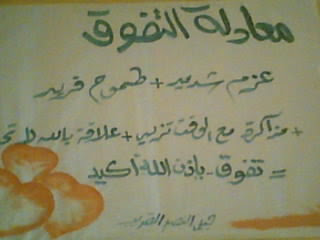 معادلة التفوق
عزم شديد + طموح فريد
+ مذاكرة مع الوقت تزيد + علاقة بالله
= تفوق بإذن الله أكيد